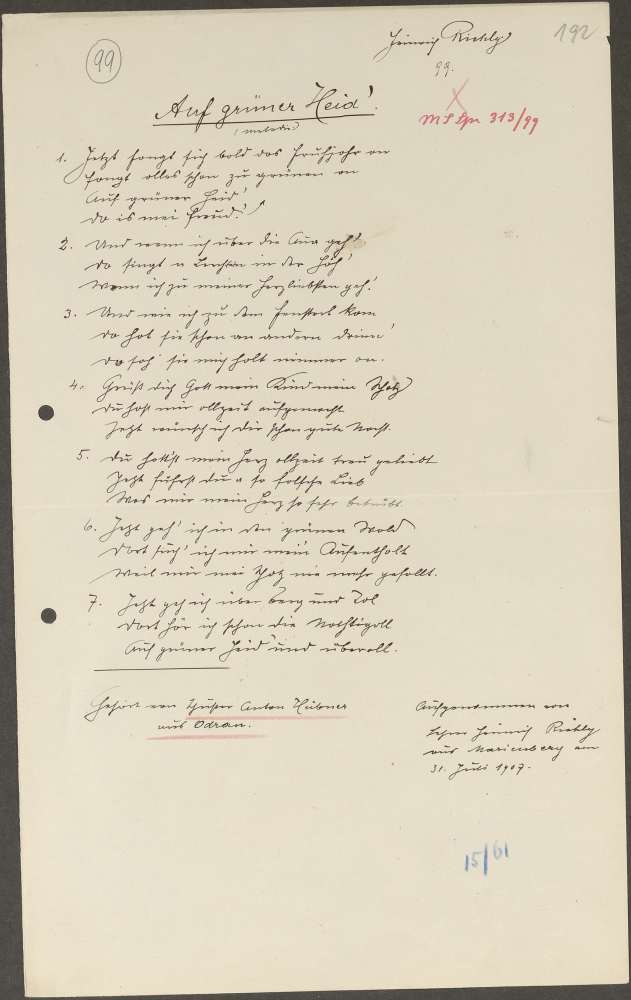 99
Heinrich Richly
192
99.
Auf grüner Heid'.
MS Lpr 313/99
1. Jetzt fangt sich bald das Frühjahr an
fangt alles schon zu grünen an
Auf grüner Heid'
Da is mei Freud'.
2. Und wenn ich über die Aua geh'
Da singt a in der Höh'
Wenn ich zu meiner Herzliebsten geh'.
3. Und wie ich zu dem Fensterl kam
Da hat sie schon an andern drinn'
Da sah' sie mich halt nimmer an.
4. Grüß dich Gott mein Kind mein Schatz
Du hast mir allzeit aufgemacht
Jetzt wünsch ich dir schon gute Nacht.
5. Du hattst mein Herz allzeit treu geliebt
Jetzt führst du a so falsche Lieb
Was mir mein Herz so sehr betrübt.
6. Jetzt geh' ich in den grünen Wald
Dort such' ich mir mein Aufenthalt
Weil mir mei Schatz nie mehr gefallt.
7. Jetzt geh ich über Berg und Tal
Dort hör ich schon die Nachtigall
Auf grüner Heid' und überall.
Gehört von Schuster Anton Hübner
aus Odrau.
Aufgenommen von
Lehrer Heinrich Richly
aus Marienberg am
31. Juli 1907.
15/61